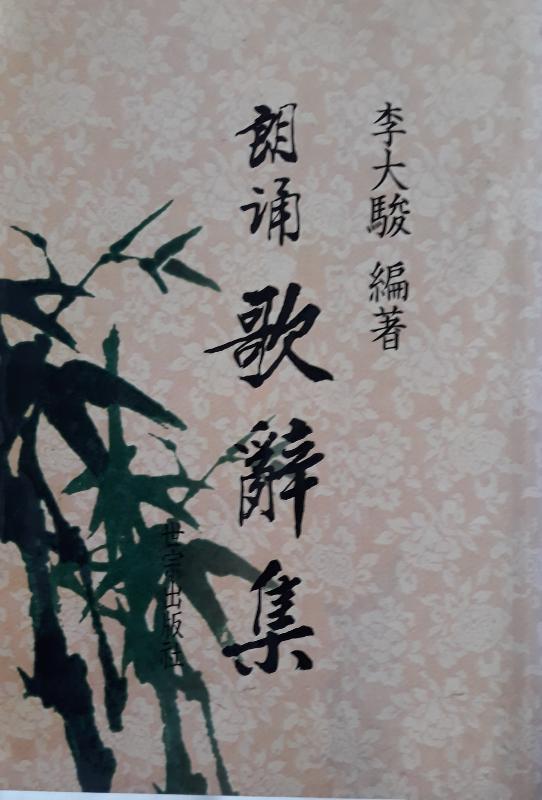 李大駿 編著
朗誦 歌辭集
世宗出版社